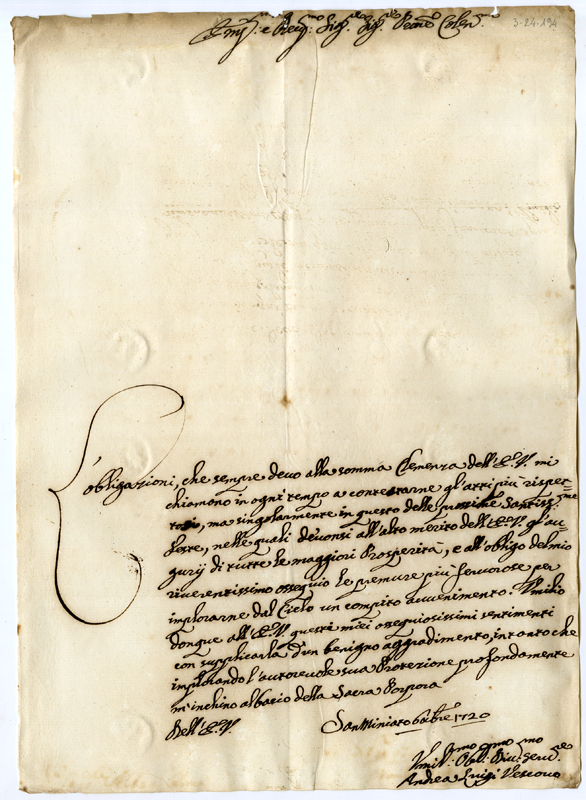 Em.mo e Rev.mo Sig.re Sig.re P.rone Col.mo
3-24-194
L'obbligazioni, che sempre devo alla somma Clemenza dell'E.V. mi
chiamono in ogni tempo a contestarne gl'atti più rispet-
tosi, ma singolarmente in questo delle prossime Santiss.me
Feste, nelle quali devonsi all'alto merito dell'E.V. gl'au-
gurij di tutte le maggiori Prosperità, e all'obligo del mio
riverentissimo ossequio le premure più fervorose per
implorarne dal Cielo un compito avvenimento. Umilio
donque all'E.V. questi miei ossequiosissimi sentimenti
con supplicarla d'un benigno aggradimento, intanto che
implorando l'autorevole sua Protezione profondamente
m'inchino al bacio della Sacra Porpora
Dell'E.V.
San Miniato 6 Xbre 1720
Umil.mo Obb.mo Div.mo Serv.re
Andrea Luigi Vescovo